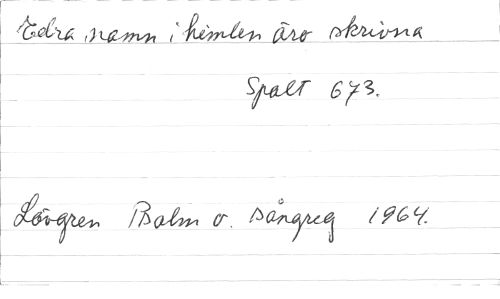 Edra namn i himlen äro skrivna
Spalt 673.
Lövgren Psalm o. sångreg 1964.